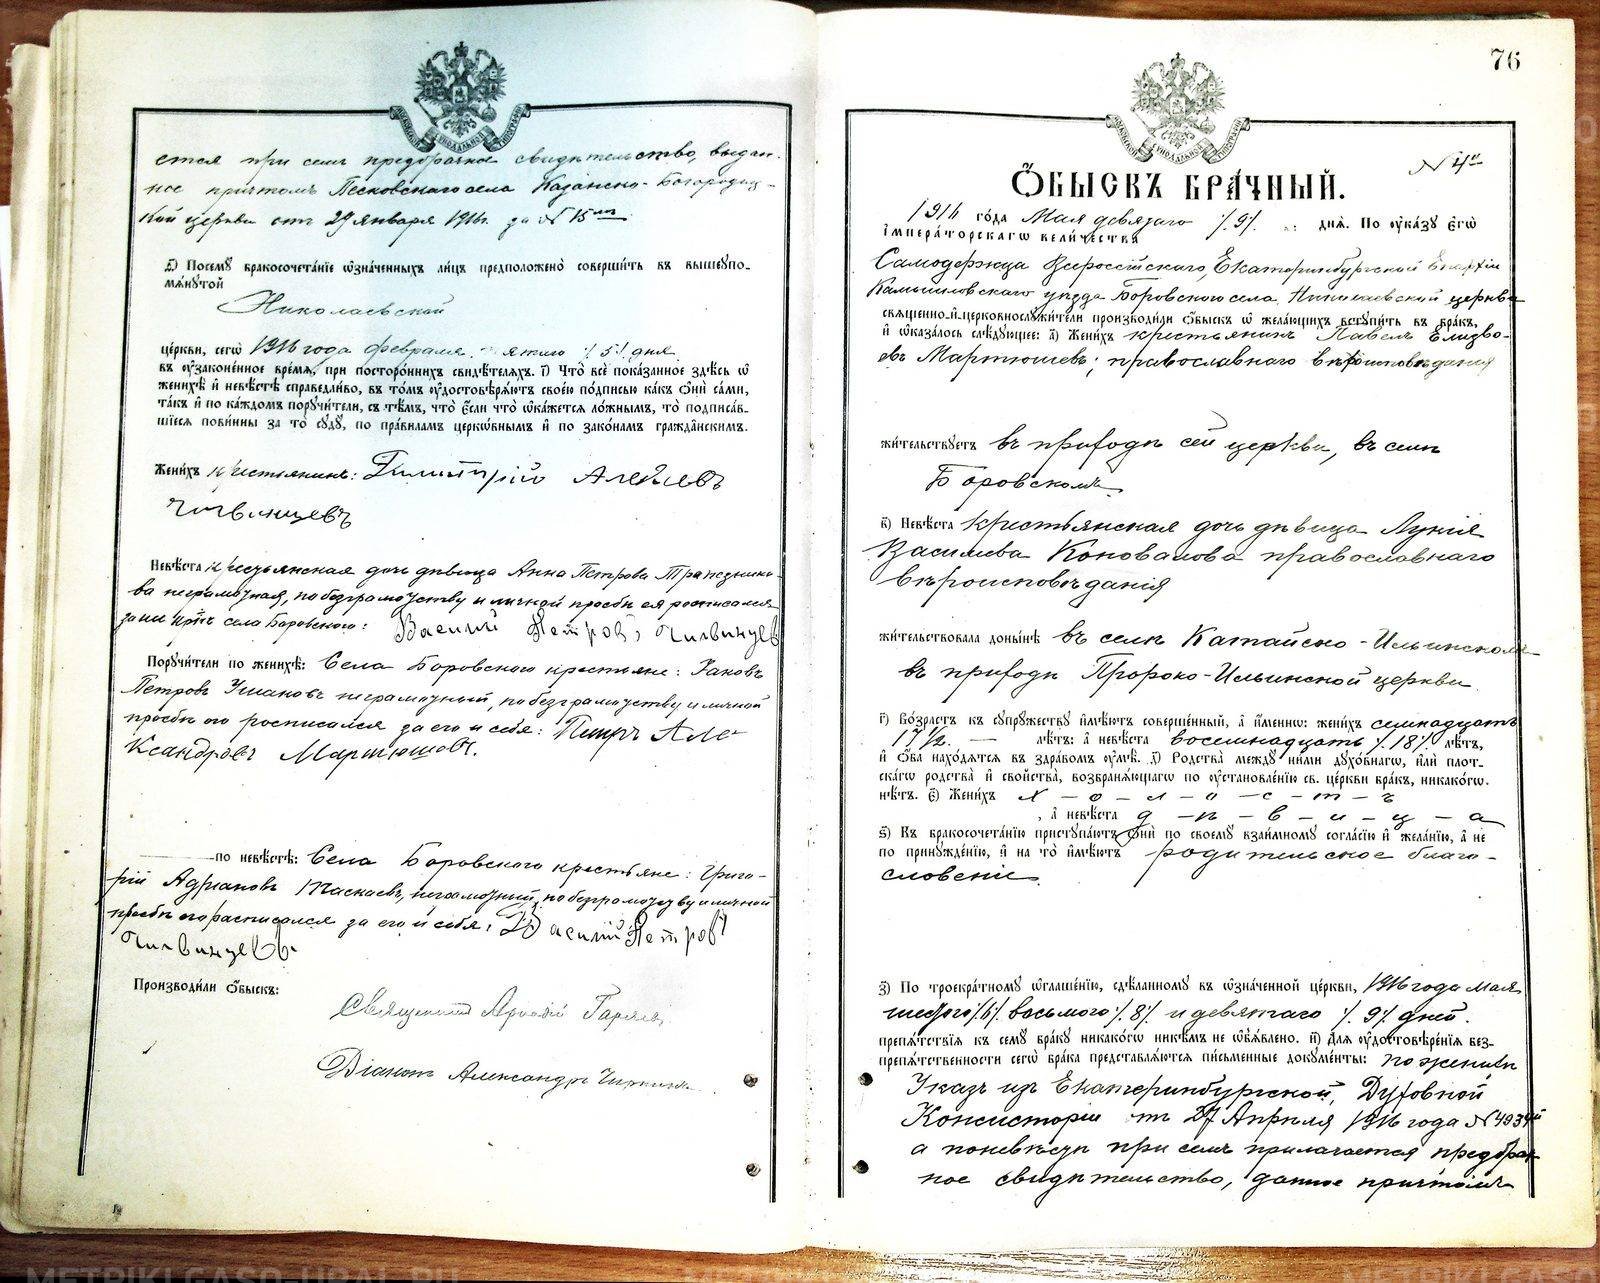 ется при семъ предбрачное свидѣтельство, выдан-
ное причтомъ Песковскаго села Казанско-Богородиц-
кой церкви отъ 29 января 1916 г. за № 15ым
в҃) Посемꙋ бракосочетанїе ѡ҆зна́ченныхъ лицъ предположено̀ соверши́ть въ вышеꙋпо-
мѧ́нꙋтой
Николаевской
це́ркви, сегѡ̀ 1916 года февраля пятаго /5/ дня
въ оу҆зако́ненное вре́мѧ, при посторо́ннихъ свидѣ́телѧхъ. г҃) Что̀ всѐ пока́занное здѣ́сь ѡ҆
женихѣ̀ и҆ невѣ́стѣ справедли́во, въ то́мъ оу҆достовѣрѧ́ютъ свое́ю по́дписью ка́къ ѻ҆нѝ са́ми,
та́къ и҆ по ка́ждомъ порꙋчи́тели, съ тѣ́мъ, что̀ є҆́сли что̀ ѡ҆ка́жетсѧ ло́жнымъ, то̀ подписа́в-
шїесѧ пови́нны за то̀ сꙋдꙋ̀, по пра́виламъ церко́внымъ и҆ по зако́намъ гражда́нскимъ.
Жени́хъ крестьянинъ: Димитрій Алеѣевъ
Чигвинцевъ
Невѣ́ста крестьянская дочь дѣвица Анна Петрова Трапезнико-
ва неграмотная, по безграмотству и личной просьбѣ ея росписался
за ни крест. села Боровского: Василий Петровъ Чигвинцев
Порꙋчи́тели по женихѣ̀: Села Боровского крестьяне: Іаковъ
Петровъ Ушаковъ неграмотный, по безграмотству и личной
просьбѣ его росписался за его и себя: Петръ Але
ксандровъ Мартюшовъ.
по невѣ́стѣ: Села Боровского крестьяне: Григо-
рій Адриановъ Таскаевъ, неграмотный, по безграмотству и личной
просьбѣ его расписался за его и себя: Василий Петровъ
Чигвинцевъ.
Производи́ли ѻ҆́быскъ:
Священникъ Аркадій Гаряев
Діаконъ Александръ
76
№ 4й
Ѻ҆́БЫСКЪ БРА́ЧНЫЙ.
1916 го́да Мая девятаго /9/ днѧ̀. По оу҆ка́зꙋ Є҆гѡ̀
И҆мпера́торскагѡ вели́чества
Самодержца Всероссійскаго, Екатеринбургской Епархіи
Камышловскаго уѣзда Боровского села, Николаевской церкви
свѧще́нно-и҆-церковнослꙋжи́тели производи́ли ѻ҆́быскъ ѡ҆ жела́ющихъ встꙋпи́ть въ бра́къ,
и҆ ѡ҆каза́лось слѣ́дꙋющее: а҃) Жени́хъ крестьянинъ Павелъ Елизво-
евъ Мартюшевъ; православнаго вѣроисповѣданія
жи́тельствꙋетъ въ приходѣ сей церкви, въ селѣ
Боровскомъ
в҃) Невѣ́ста крестьянская дочь дѣвица Лукія
Василиева Коновалова православнаго
вѣроисповѣданія
жи́тельствовала доны́нѣ въ селѣ Катайско-Ильинскомъ
въ приходѣ Пророко-Ильинской церкви
г҃) Во́зрастъ къ сꙋпрꙋ́жествꙋ и҆мѣ́ютъ соверше́нный, а҆ и҆́менно: жени́хъ семнадцать
17 1/2. — лѣ́тъ: а҆ невѣ́ста восемнадцать /18/ лѣ́тъ,
и҆ ѻ҆́ба нахо́дѧтсѧ въ здра́вомъ оу҆мѣ̀. д҃) Родства̀ междꙋ̀ ни́ми дꙋхо́внагѡ, и҆лѝ плот-
ска́гѡ родства̀ и҆ сво́йства, возбранѧ́ющагѡ по оу҆становле́нїю св. це́ркви бра́къ, никако́гѡ
нѣ́тъ. є҃) Жени́хъ х — о — л — о — с — т — ъ
, а҆ невѣ́ста д — ѣ — в — и — ц — а
ѕ҃) Къ бракосочета́нїю пристꙋпа́ютъ ѻ҆нѝ по своемꙋ̀ взаи́мномꙋ согла́сїю и҆ жела́нїю, а҆ не
по принꙋжде́нїю, и҆ на то̀ и҆мѣ́ютъ родительское благо-
словеніе
з҃) По троекра́тномꙋ ѡ҆глаше́нїю, сдѣ́ланномꙋ въ ѡ҆зна́ченной це́ркви, 1916 года мая
шестого /6/ восьмого /8/ и девятаго /9/ дней.
препѧ́тствїѧ къ семꙋ̀ бра́кꙋ никако́гѡ никѣ́мъ не ѡ҆б̾ѧ́влено. и҃) Длѧ̀ оу҆достовѣре́нїѧ без-
препѧ́тственности сегѡ̀ бра́ка представлѧ́ютсѧ пи́сьменные докꙋме́нты: по женихѣ
Указъ изъ Екатеринбургской Духовной
Консисторіи отъ 27 Апрѣля 1916 года № 4934й
а по невѣстѣ при семъ прилагается предбрач-
ное свидѣтельство, данное причтомъ
METRIKI.GASO-URAL.RU